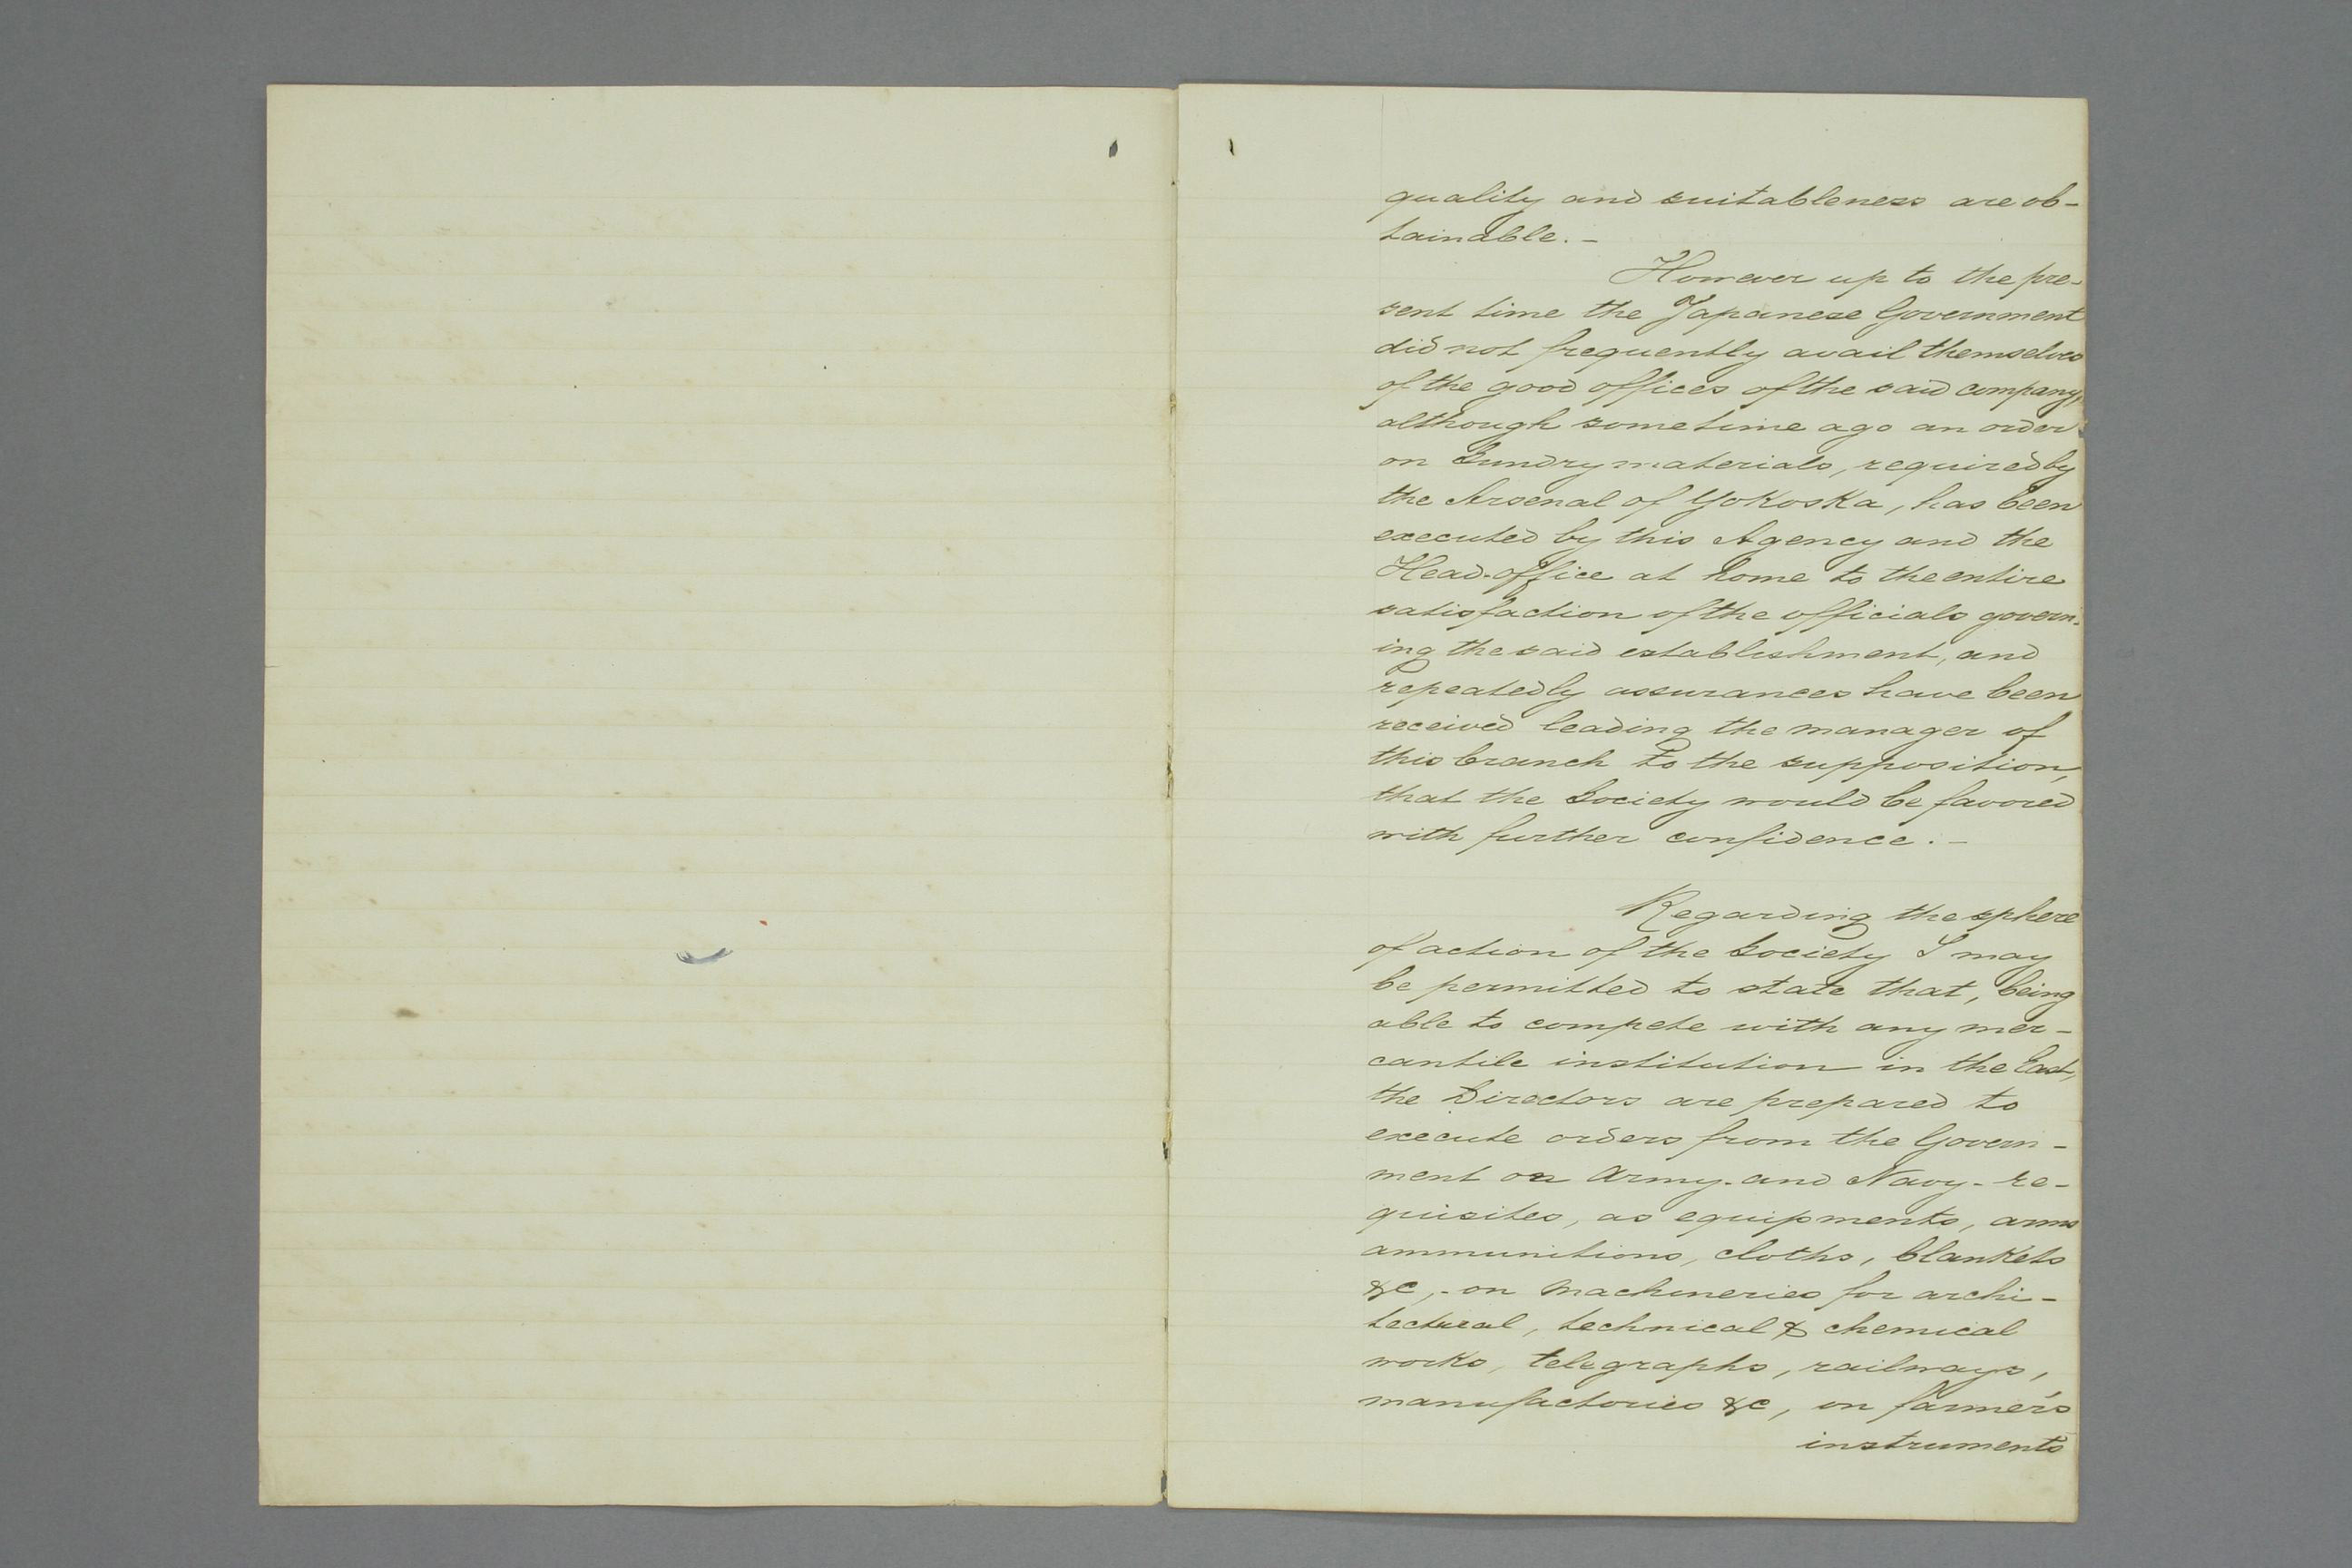 quality and suitableness are ob-
tainable. -
However up to the pre-
sent time the Japanese Government
did not frequently avail themselves
of the good offices of the said company,
although sometime ago an order
on Sundry materials, required by
the Arsenal of YoKosKa, has been
executed by this Agency and the
Head-office at home to the entire
satisfaction of the officials govern-
ing the said establishment, and
repeatedly assurances have been
received leading the manager of
this branch to the supposition,
that the Society would be favored
with further confidence. -
Regarding the sphere
of action of the Society I may
be permitted to state that, being
able to compete with any mer-
cantile institution in the East,
the Directors are prepared to
execute orders from the Govern-
ment on Army- and Navy- re-
quisites, as equipments, arms
ammunitions, cloths, blankets
&c,- on Machineries for archi-
tectural, technical & chemical
works, telegraphs, railways,
manufactories &c, on farmer's
instruments